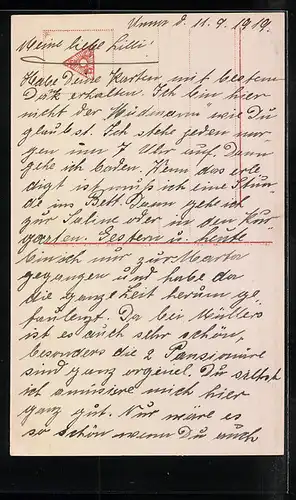 Unna d. 11.9.1919.
Meine liebe Lilli!
Habe Deine Karten mit bestem
Dak erhalten. Ich bin hier
nicht der "Müdmann" wie Du
glaubst. Ich stehe jeden mor-
gen um 7 Uhr auf. Dann
gehe ich baden. Wenn das erle-
digt ist muß ich eine Stun-
de ins Bett. Dann gehe ich
zur Saline oder in den Kur-
garten. Gestern u. heute
bin ich nur zur Marta
gegangen und habe da
die ganze Zeit herum ge-
faulenzt. Da bei Müllers
ist es auch sehr schön,
besonders die 2 Pensionäre
sind ganz Du siehst
ich amüsiere mich hier
ganz gut. Nur wäre es
so schön wenn Du auch